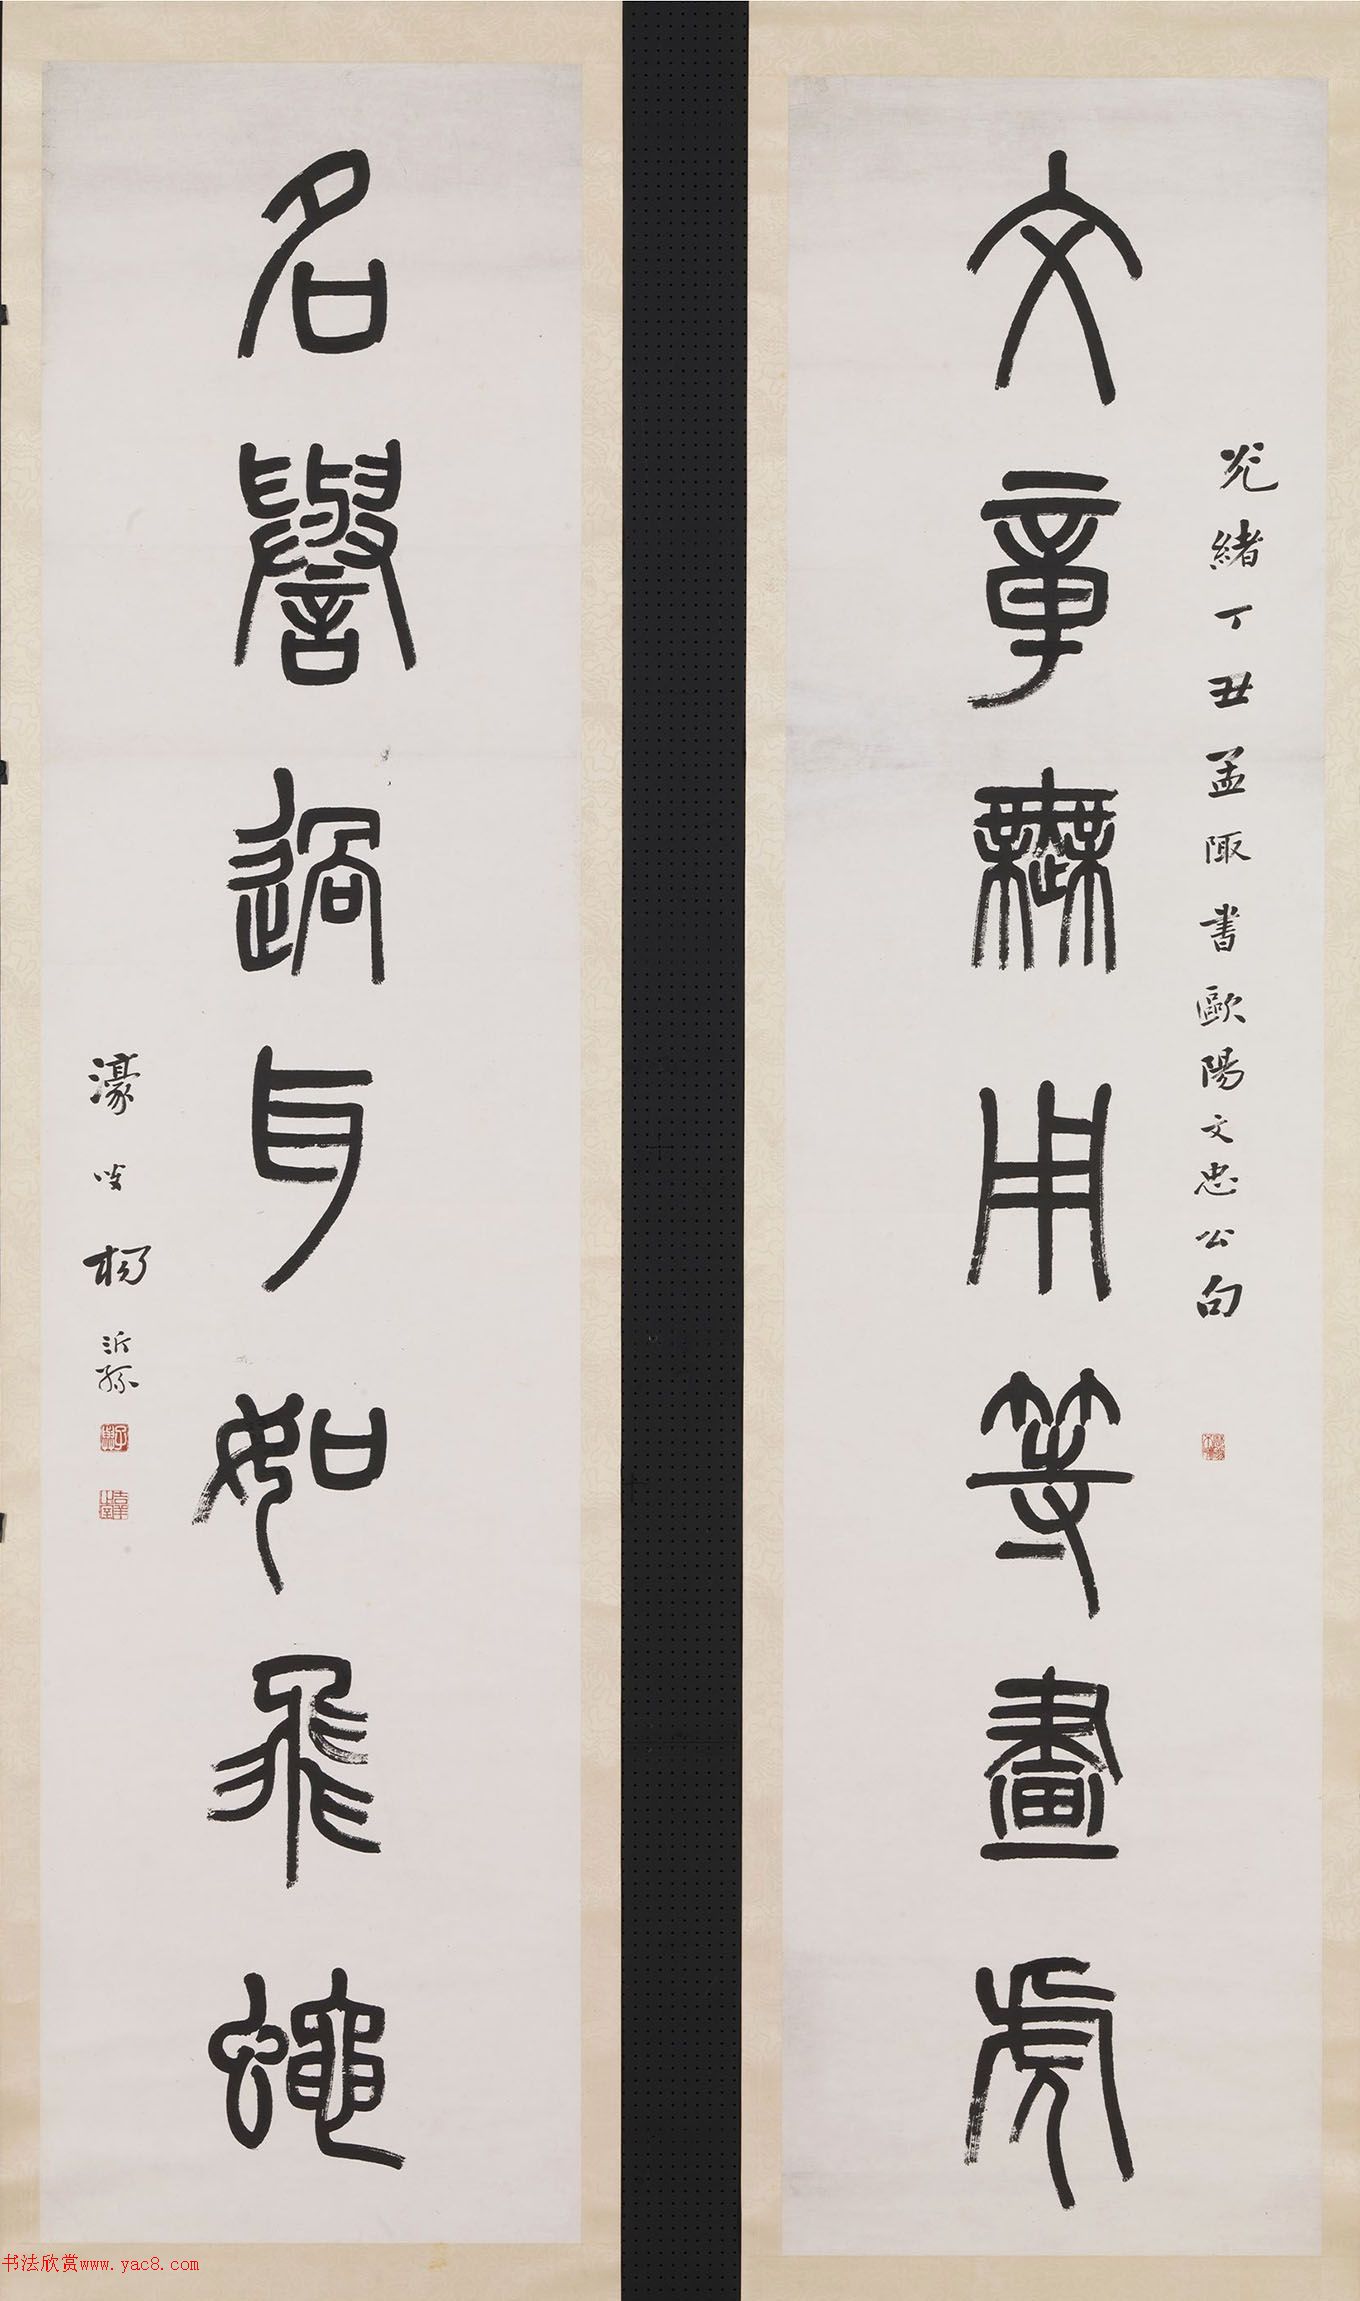 文章無用等畫虎
光緒丁丑孟陬書歐陽文忠公句
名譽過耳如飛蠅
濠叟楊沂孫
书法欣赏www.yac8.com